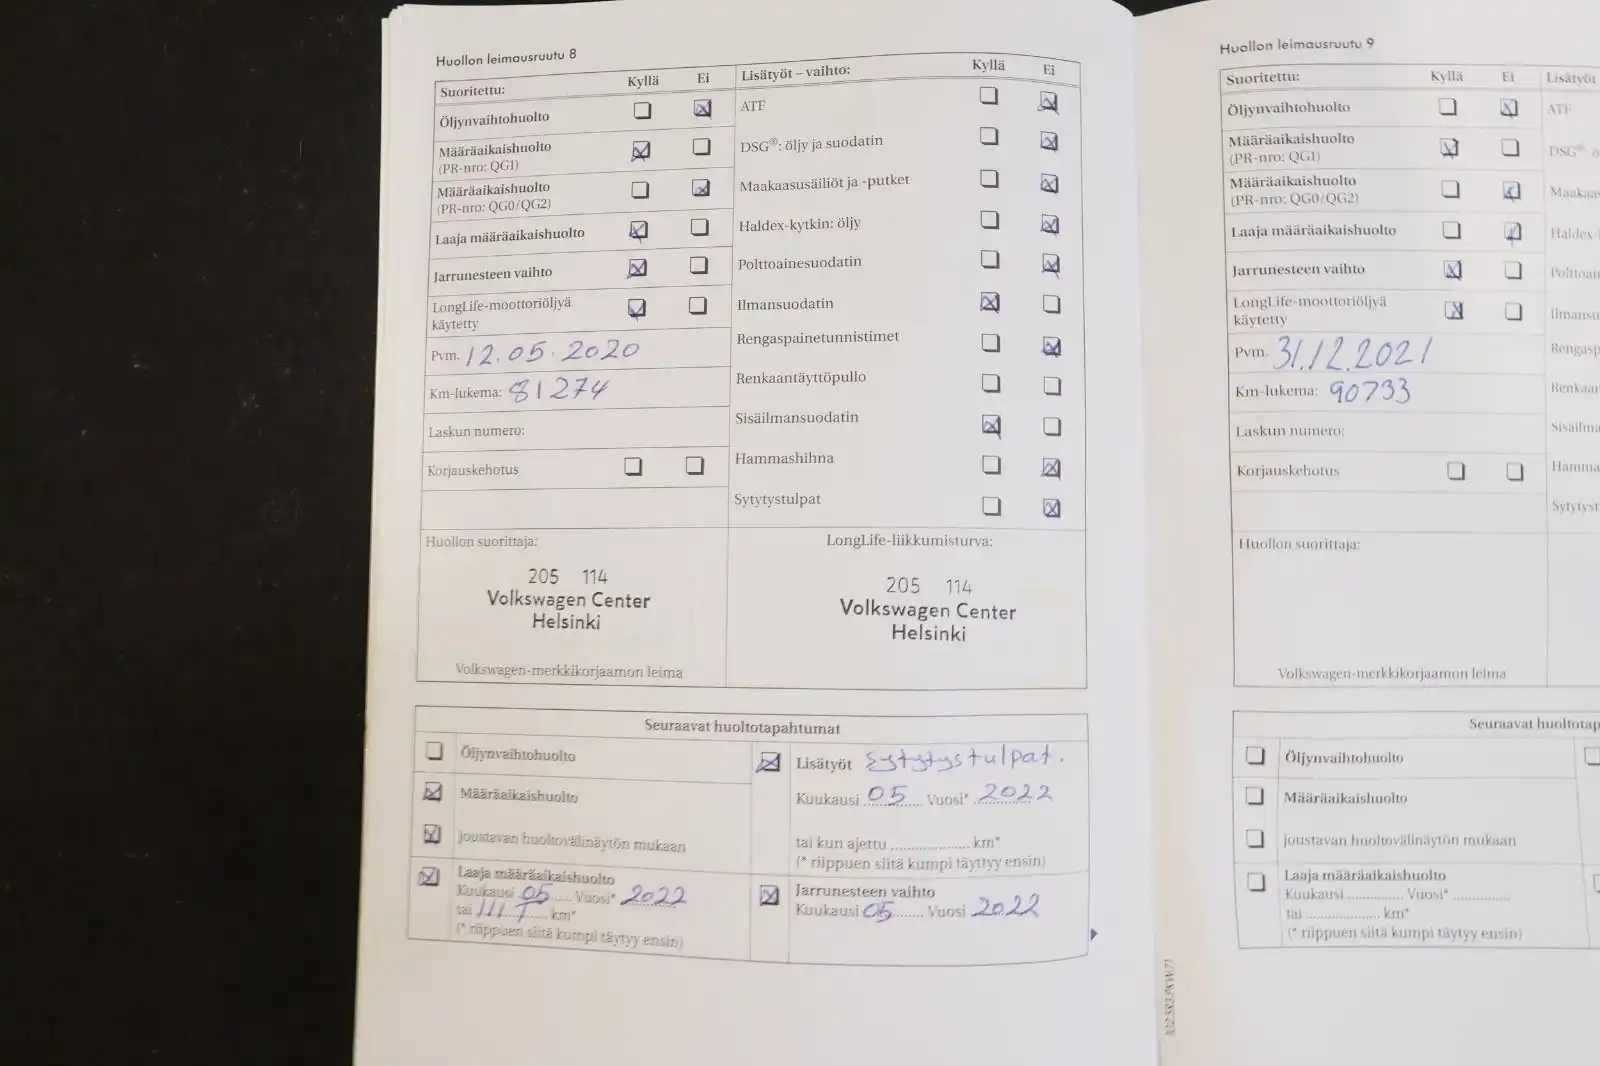 Huollon leimausruutu 8
Suoritettu: Kyllä Ei
Öljynvaihtohuolto
Määräaikaishuolto
(PR-nro: QG1)
Määräaikaishuolto
(PR-nro: QG0/QG2)
Laaja määräaikaishuolto
Jarrunesteen vaihto
LongLife-moottoriöljyä
käytetty
Pvm. 12.05.2020
Km-lukema: 81274
Laskun numero:
Korjauskehotus
Lisätyöt – vaihto: Kyllä Ei
ATF
DSG®: öljy ja suodatin
Maakaasusäiliöt ja -putket
Haldex-kytkin: öljy
Polttoainesuodatin
Ilmansuodatin
Rengaspainetunnistimet
Renkaantäyttöpullo
Sisäilmansuodatin
Hammashihna
Sytytystulpat
Huollon suorittaja:
205 114
Volkswagen Center
Helsinki
Volkswagen-merkkikorjaamon leima
LongLife-liikkumisturva:
205 114
Volkswagen Center
Helsinki
Seuraavat huoltotapahtumat
Öljynvaihtohuolto
Määräaikaishuolto
joustavan huoltovälinäytön mukaan
Laaja määräaikaishuolto
Kuukausi 05 Vuosi* 2022
tai km*
(* riippuen siitä kumpi täytyy ensin)
Lisätyöt Sytytystulpat.
Kuukausi 05 Vuosi* 2022
tai kun ajettu km*
(* riippuen siitä kumpi täyttyy ensin)
Jarrunesteen vaihto
Kuukausi 05 Vuosi 2022
Huollon leimausruutu 9
Suoritettu: Kyllä Ei
Öljynvaihtohuolto
Määräaikaishuolto
(PR-nro: QG1)
Määräaikaishuolto
(PR-nro: QG0/QG2)
Laaja määräaikaishuolto
Jarrunesteen vaihto
LongLife-moottoriöljyä
käytetty
Pvm. 31.12.2021
Km-lukema: 90733
Laskun numero:
Korjauskehotus
Lisätyöt
ATF
DSG®
Huollon suorittaja:
Volkswagen-merkkikorjaamon leima
Seuraavat
Öljynvaihtohuolto
Määräaikaishuolto
joustavan huoltovälinäytön mukaan
Laaja määräaikaishuolto
Kuukausi Vuosi*
tai km*
(* riippuen siitä kumpi täytyy ensin)